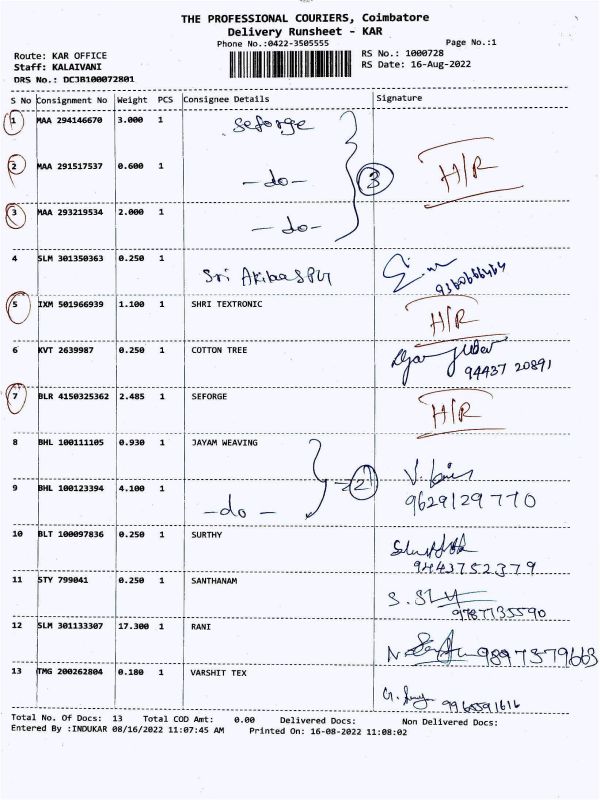 THE PROFESSIONAL COURIERS, Coimbatore
Delivery Runsheet - KAR
Phone No.:0422-3505555
Page No.:1
Route: KAR OFFICE
RS No.: 1000728
Staff: KALAIVANI
RS Date: 16-Aug-2022
DRS No.: DC3B100072801
S No Consignment No Weight PCS Consignee Details Signature
1 MAA 294146670 3.000 1 seforge
2 MAA 291517537 0.600 1 -do- 3 H/R
3 MAA 293219534 2.000 1 -do-
4 SLM 301350363 0.250 1 Sri
5 IXM 501966939 1.100 1 SHRI TEXTRONIC H/R
6 KVT 2639987 0.250 1 COTTON TREE
94437 20891
7 BLR 4150325362 2.485 1 SEFORGE H/R
8 BHL 100111105 0.930 1 JAYAM WEAVING
2
9 BHL 100123394 4.100 1 -do- 9629129770
10 BLT 100097836 0.250 1 SURTHY
9443752379
11 STY 799041 0.250 1 SANTHANAM
9787735590
12 SLM 301133307 17.300 1 RANI
9897379663
13 TMG 200262804 0.180 1 VARSHIT TEX
9965591616
Total No. Of Docs: 13 Total COD Amt: 0.00 Delivered Docs: Non Delivered Docs:
Entered By :INDUKAR 08/16/2022 11:07:45 AM Printed On: 16-08-2022 11:08:02